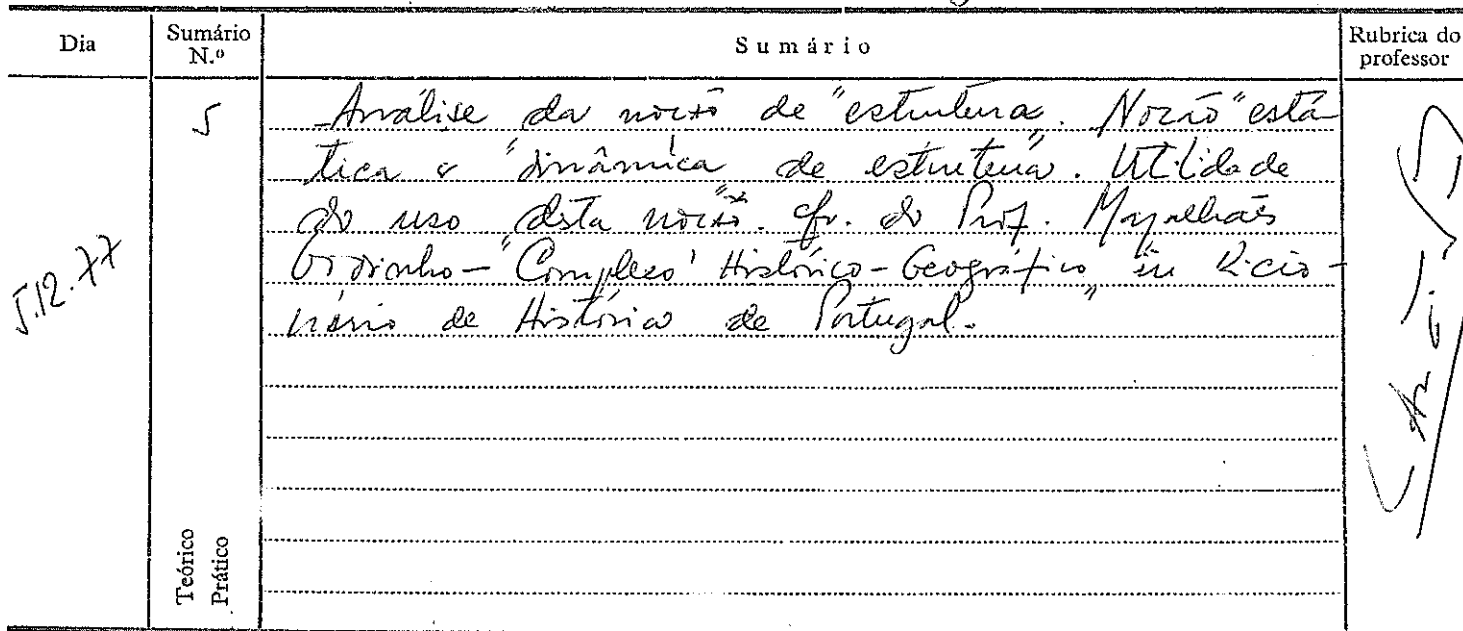 Dia
Sumário N.º
Sumário
Rubrica do professor
5.12.77
5
Análise da noção de "estrutura. Noção "está-
tica e "dinâmica de estrutura. Utilidade
do uso desta noção. Cfr. do Prof. Magalhães
Godinho - "Complexo Histórico-Geográfico" in Dicio-
nário de História de Portugal.
Teórico
Prático